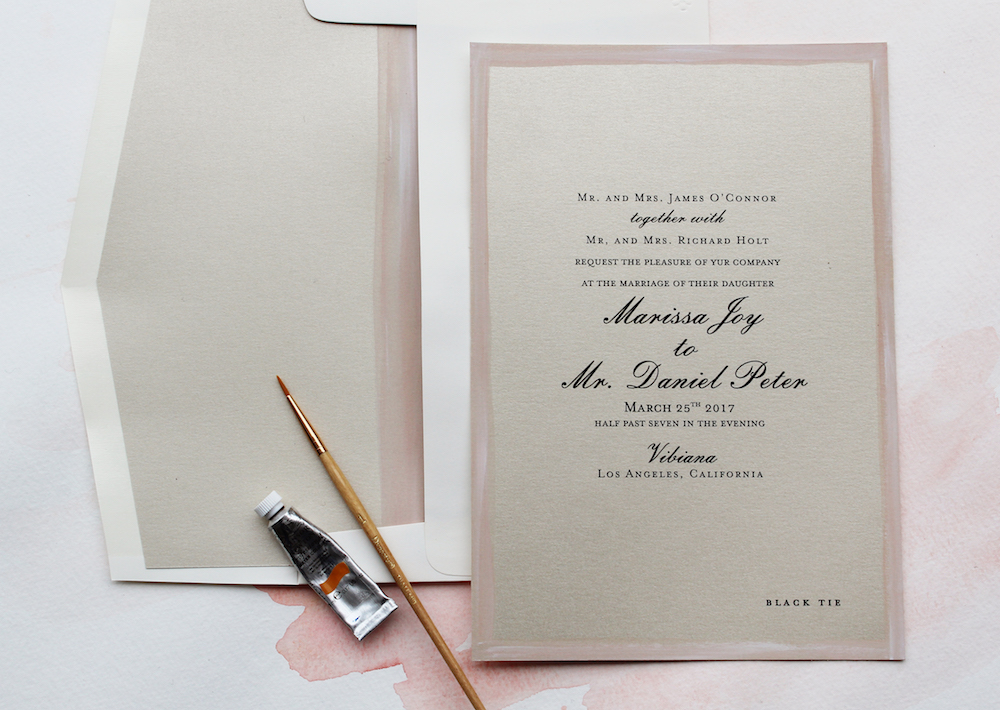 Mr. and Mrs. James O'Connor
together with
Mr, and Mrs. Richard Holt
request the pleasure of yur company
at the marriage of their daughter
Marissa Joy
to
Mr. Daniel Peter
March 25th 2017
half past seven in the evening
Vibiana
Los Angeles, California
BLACK TIE